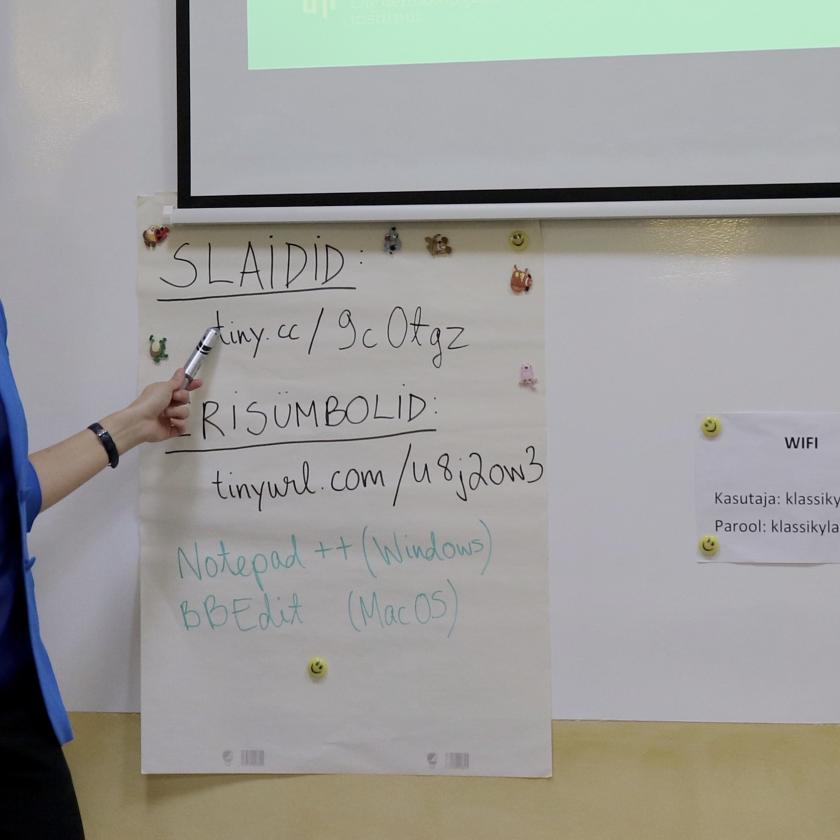 SLAIDID:
tiny.cc/9c0tgz
ERISÜMBOLID:
tinyurl.com/u8j2ow3
Notepad ++ (Windows)
BBEdit (MacOS)
WIFI
Kasutaja: klassiky
Parool: klassikyla